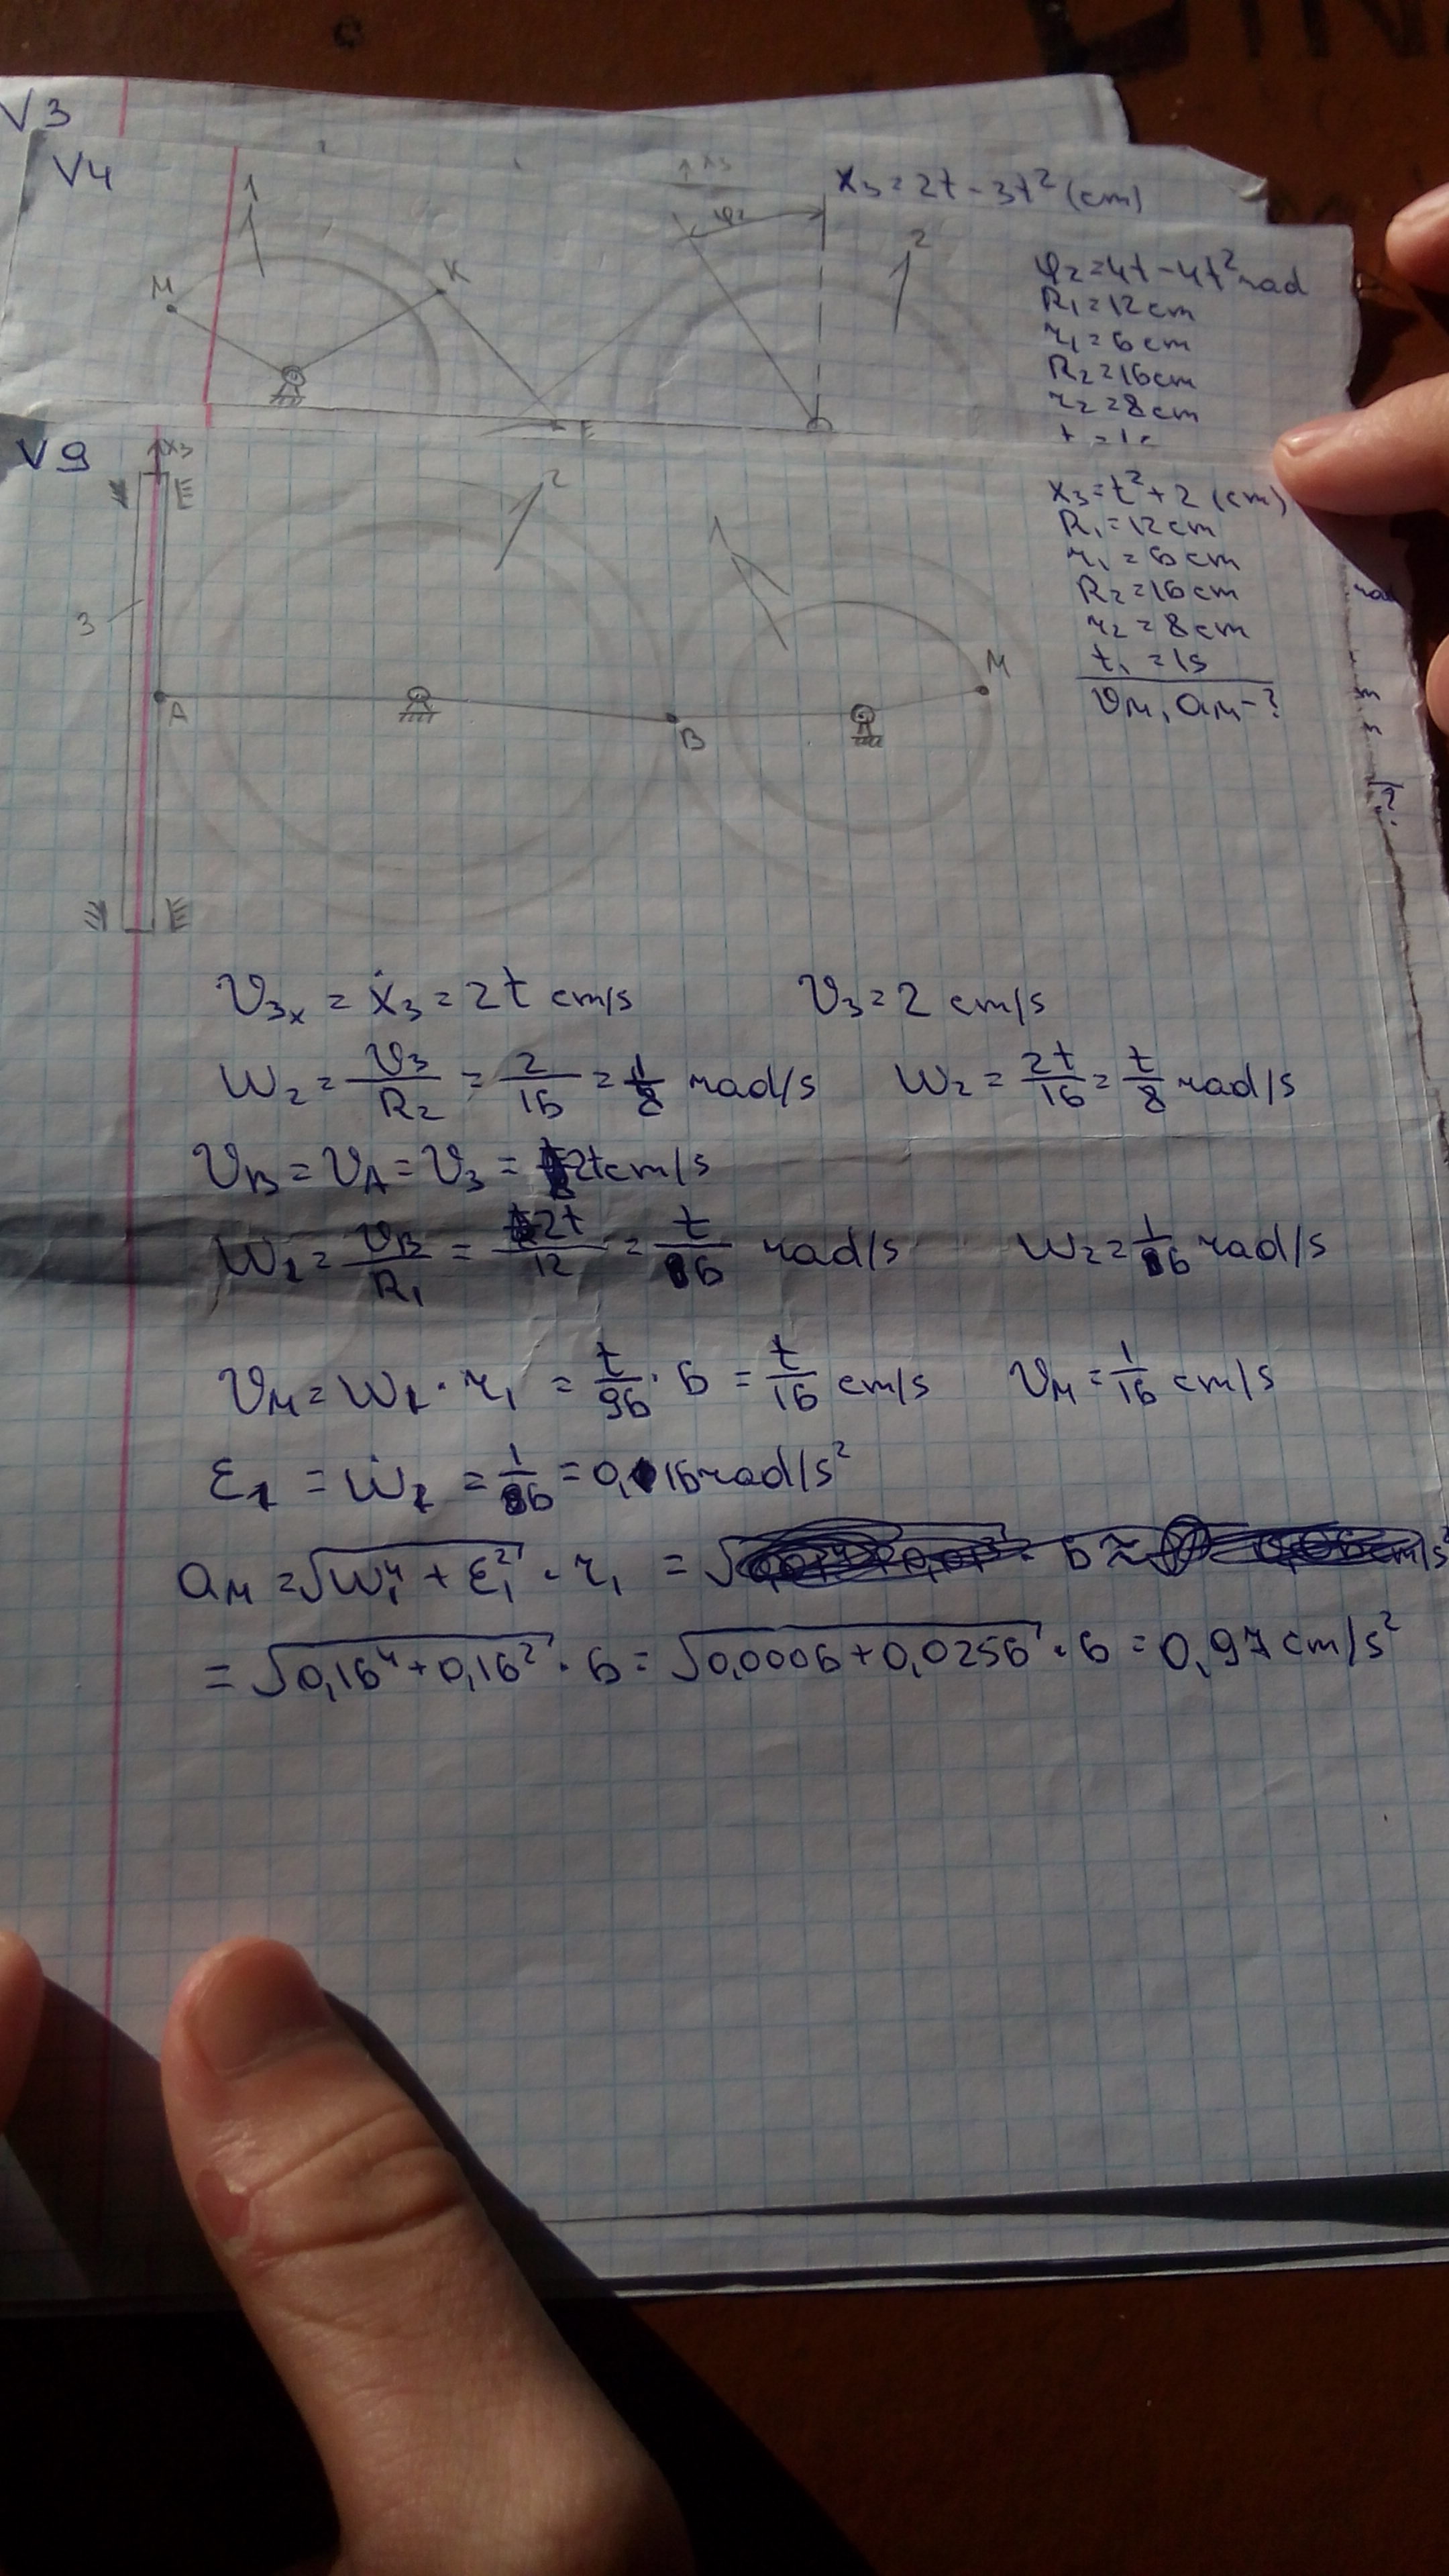 V3
V4
1
M
K
E
φ2
x3
2
x3 = 2t - 3t² (cm)
φ2 = 4t - 4t² rad
R1 = 12 cm
r1 = 6 cm
R2 = 16 cm
r2 = 8 cm
t = 1c
V9
x3
3
A
2
B
1
M
x3 = t² + 2 (cm)
R1 = 12 cm
r1 = 6 cm
R2 = 16 cm
r2 = 8 cm
t1 = 1s
υM, aM - ?
rad
m
?
υ3x = ẋ3 = 2t cm/s υ3 = 2 cm/s
ω2 = υ3/R2 = 2/16 = 1/8 rad/s ω2 = 2t/16 = t/8 rad/s
υB = υA = υ3 = 2t cm/s
ω1 = υB/R1 = 2t/12 = t/6 rad/s ω2 = 1/6 rad/s
υM = ω1 · r1 = t/96 · 6 = t/16 cm/s υM = 1/16 cm/s
ε1 = ω̇1 = 1/6 = 0,16 rad/s²
aM = √(ω1⁴ + ε1²) · r1 = √ · 6 ≈ cm/s²
= √(0,16⁴ + 0,16²) · 6 = √(0,0006 + 0,0256) · 6 = 0,97 cm/s²